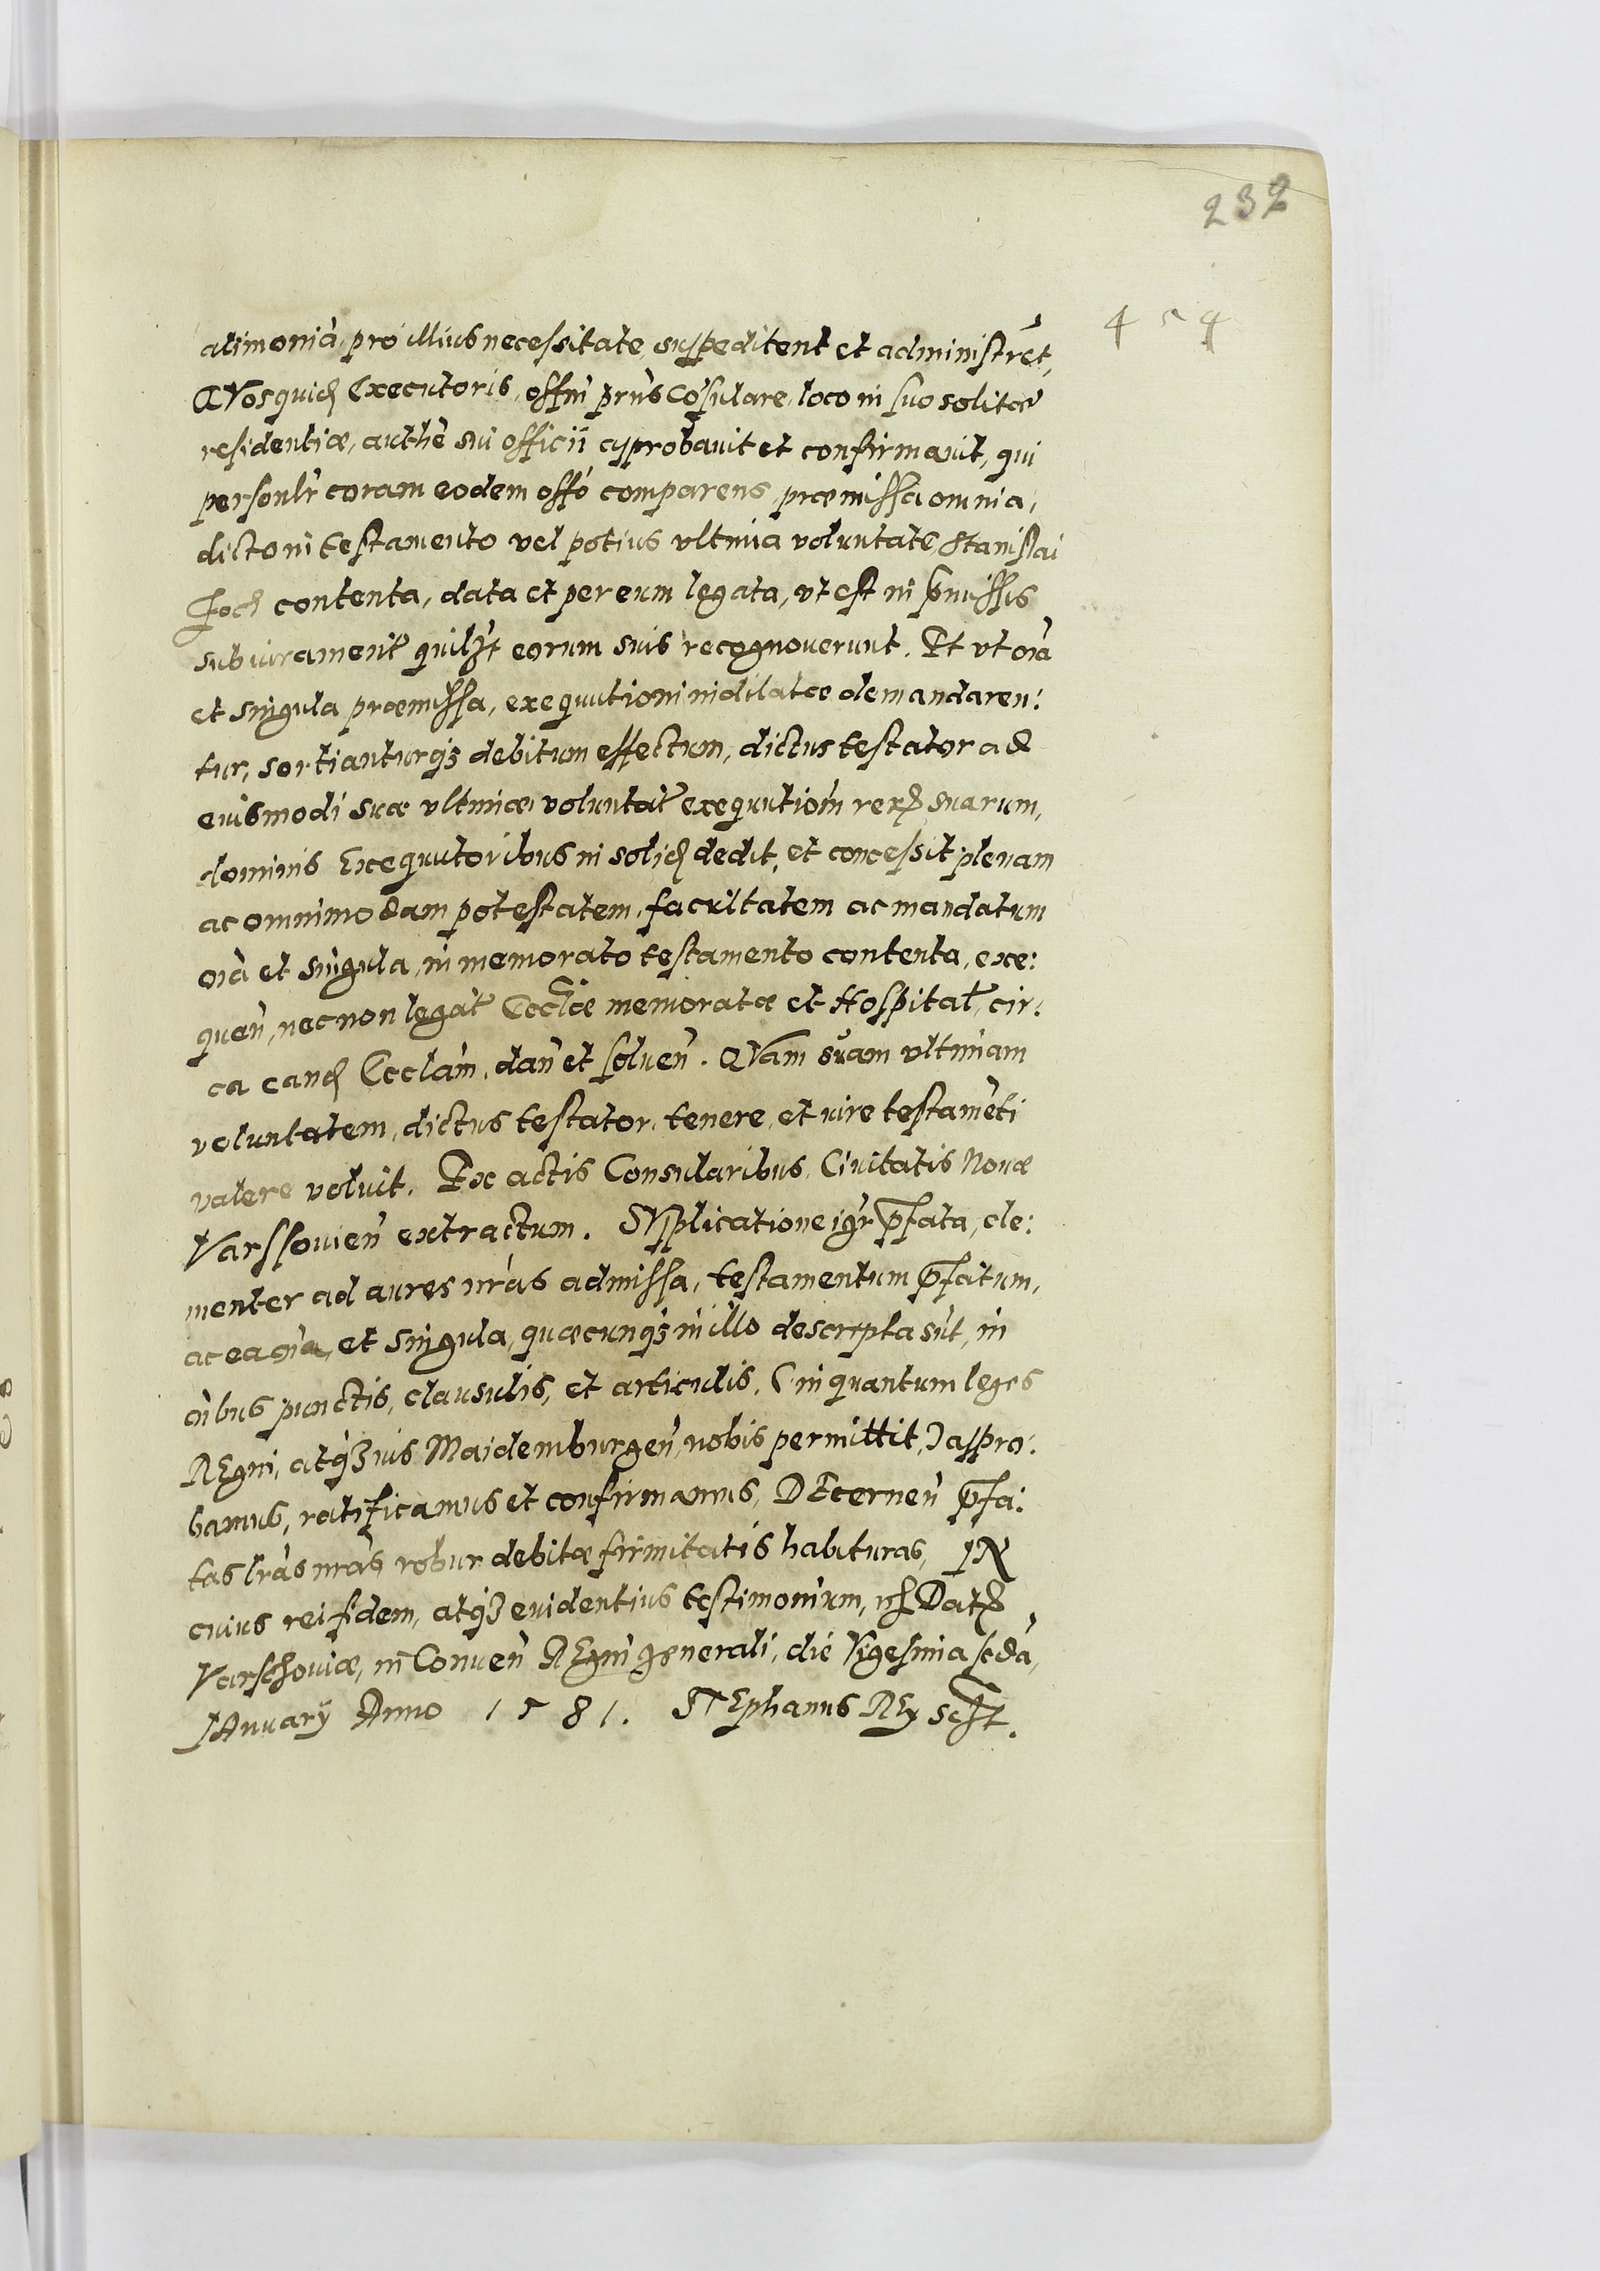 232
454
alimonià, pro illius necessitate suppeditent et administrēt,
QVos quidē Executoris, offm prūs Cōsulare, loco in suo solitæ
residentiæ, authē sui officii approbavit et confirmavit, qui
personlr̀ coram eodem offō comparens, præmissa omnia,
dicto in testamento vel potius vltima voluntate Stanislai
contenta, data et per eum legata, vt est in p̄missis
sub iurament quilzt eorum suis recognouerunt. Et vt oià
et singula præmissa, exequutioni indilatæ demandaren:
tur, sortianturqz debitum effectum, dictus testator ad
euismodi suæ vltimæ voluntat exequutiom̀ rerz suarum,
dominis Exequutoribus in solid dedit, et concessit plenam
ac omnimodam potestatem, facultatem ac mandatum
oià et singula, in memorato testamento contenta, exe:
queǹ, nec non legat Eccliæ memoratæ et Hospital, cir:
ca eand Ecclàm, dan̄ et soluen̄. QVam suam vltimam
voluntatem, dictus testator, tenere, et iure testamēti
valere voluit. Ex actis Consularibus Ciuitatis Nouæ
Varssouien̄ extractum. SVpplicatione igr̄ p̄fata, cle:
menter ad aures nr̄as admissa, testamentum p̄fatum,
ac ea oīa, et singula, quæcunqz in illo descripta sūt, in
oībus punctis, clausulis, et articulis, (in quantum leges
REgni, atqz ius Maidemburgen̄, nobis permittit,) appro:
bamus, ratificamus et confirmamus, DEcernen̄ p̄fa:
tas lr̄as nr̄as robur debitæ firmitatis habituras, IN
cuius rei fidem, atqz euidentius testimonium, Datz
Varschouiæ, in Conuen̄ REgni generali, die Vigesima scdà,
IAnuarÿ Anno 1581. STEphanus REx scpt.